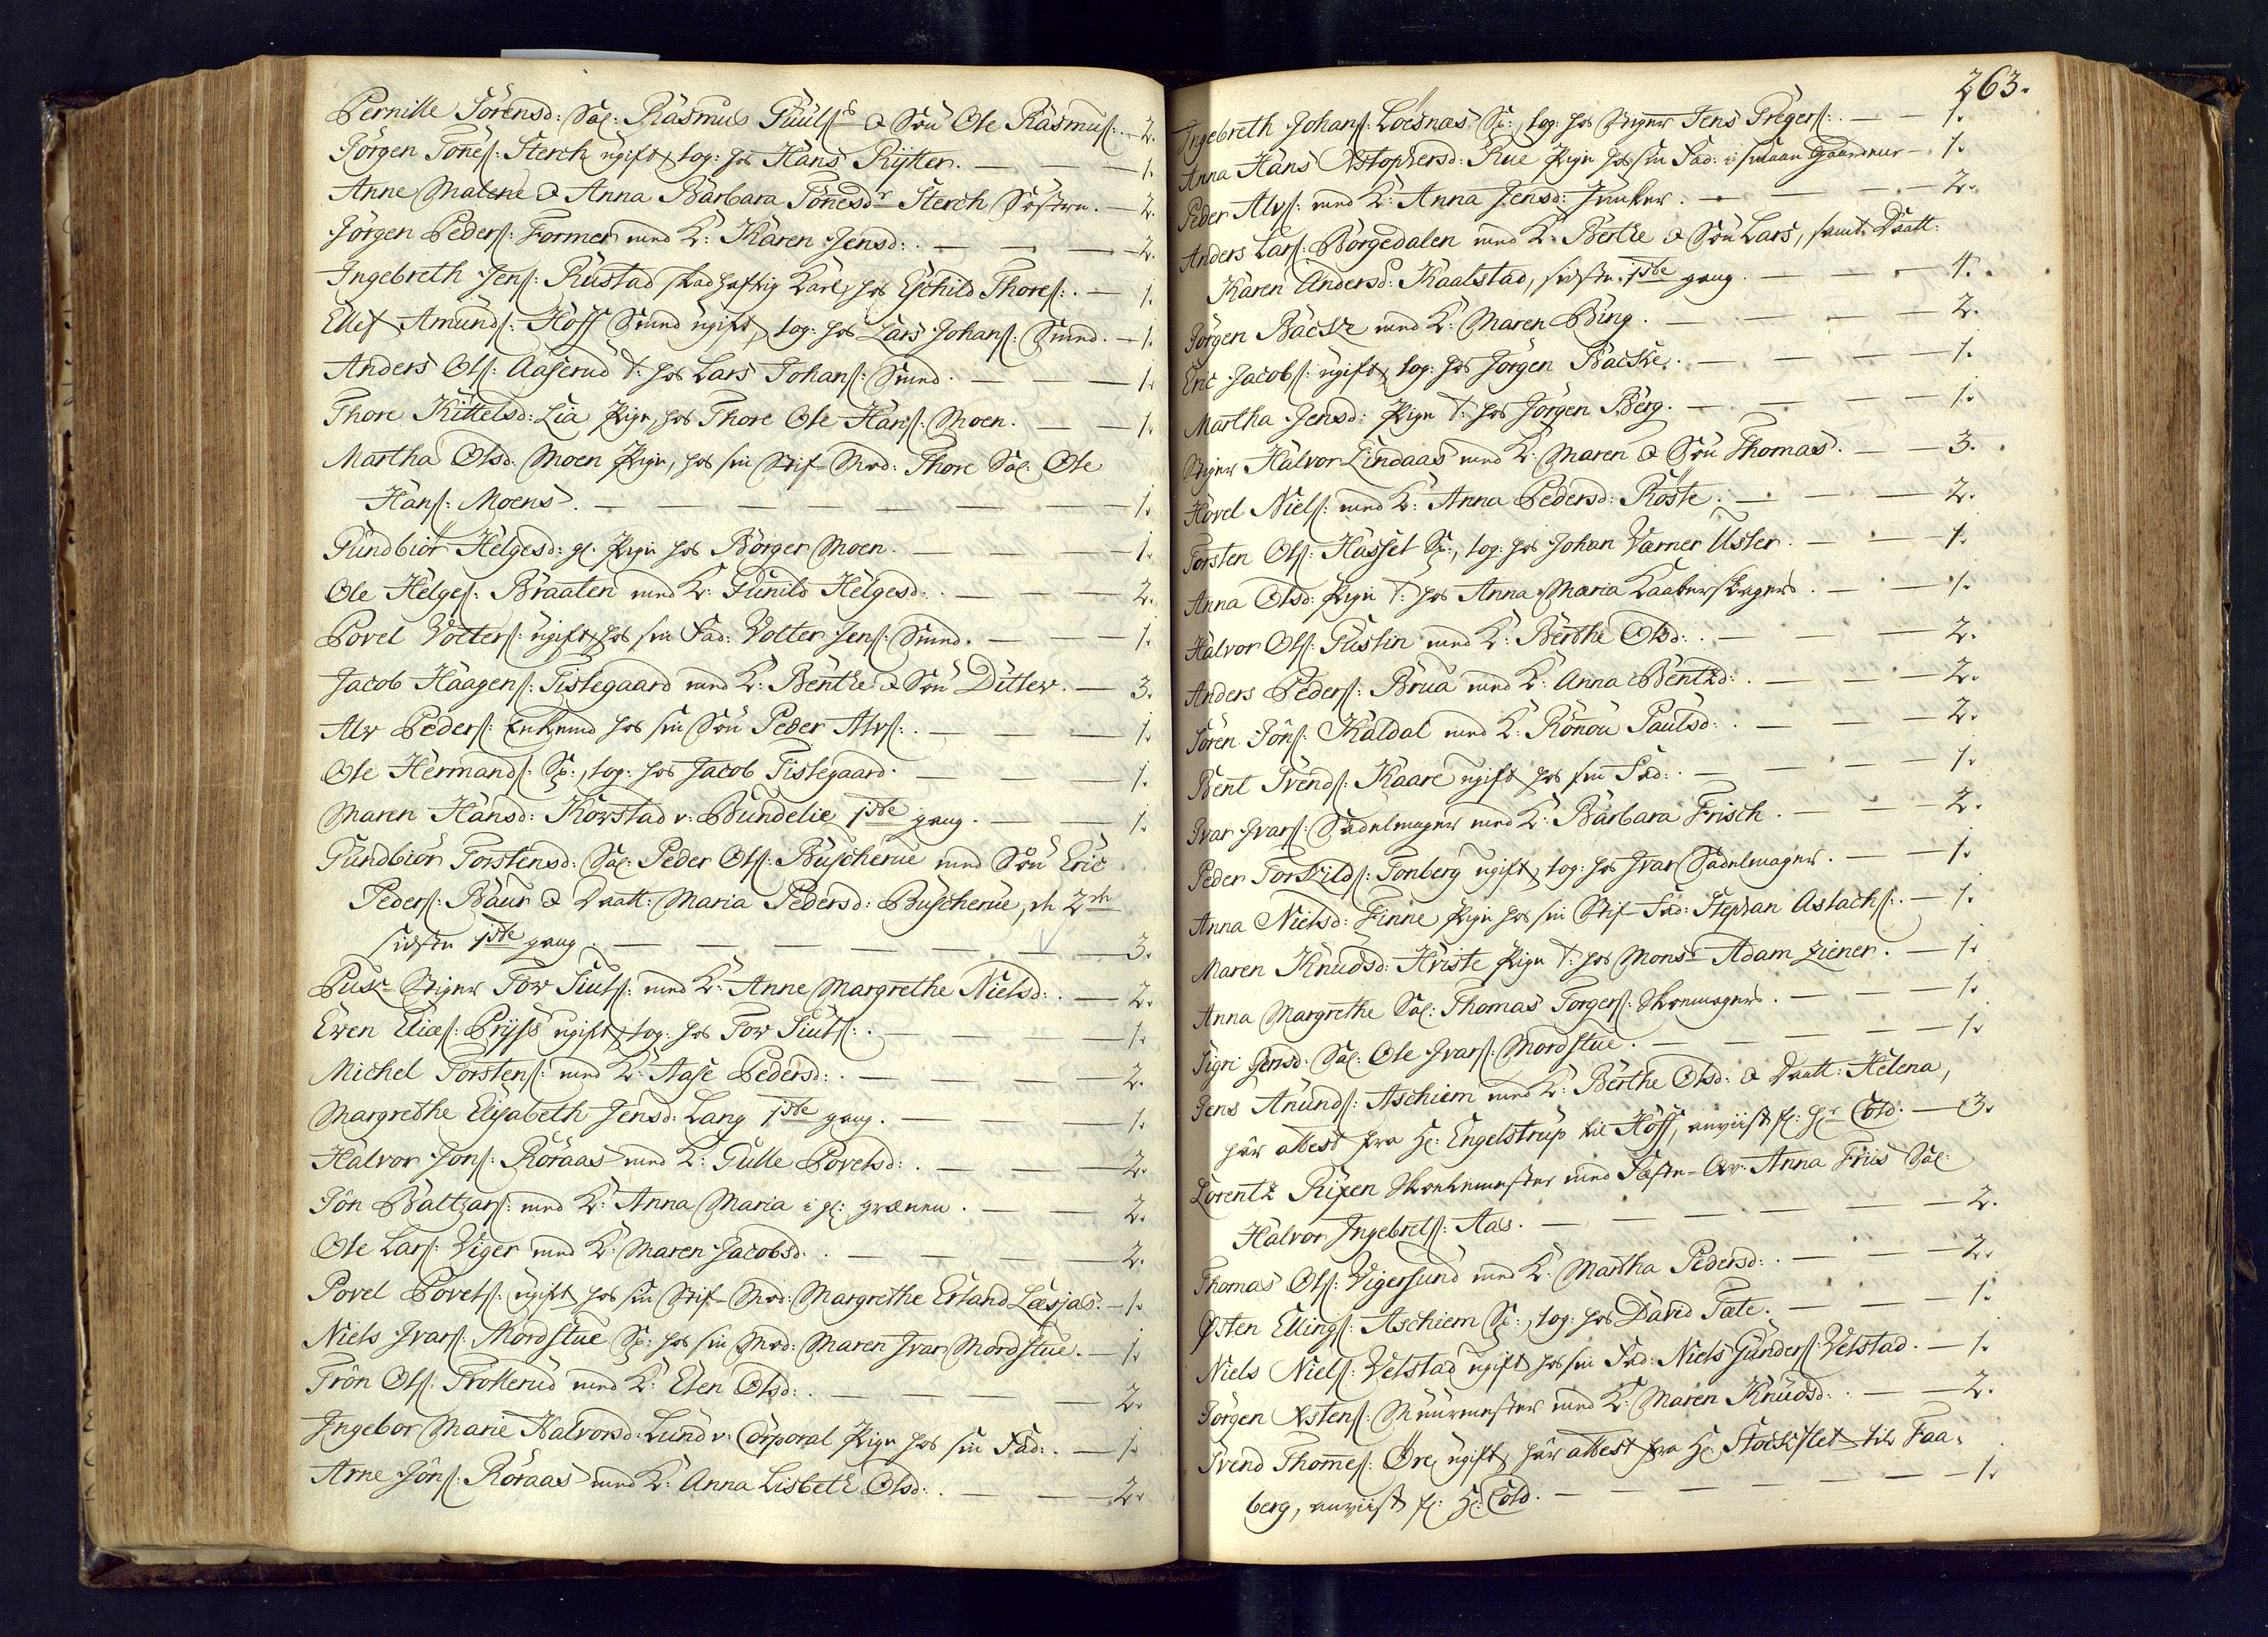 Pernille Sörensd: Sal: Rasmus Guuls & Sön Ole Rasmus: — 2.
Jörgen Tönes: Sterch ugift, log: hos Hans Rytter. — — — 1.
Anne Malene & Anna Barbara Tönesdr Sterch Söstre. — 2.
Jörgen Peders: Former med K: Karen Jensd: . — — — 2.
Ingebreth Jens: Rustad skadhaftig Karl, hos Eschild Thores: . — 1.
Ellef Amunds: Hoff Smed ugift, log: hos Lars Johans: Smed. — 1.
Anders Ols: Aaserud T: hos Lars Johans: Smed. — — — 1.
Thore Kittelsd: Lia Pige, hos Thore Ole Hans: Moen. — — 1.
Martha Olsd: Moen Pige, hos sin Stif-Mod: Thore Sal: Ole
Hans: Moens. — — — — — — — 1.
Gundbiör Helgesd: gl. Pige hos Börger Moen. — — — 1.
Ole Helges: Braaten med K: Gunild Helgesd: . — — — 2.
Povel Volters: ugift, hos sin Fad: Volter Jens: Smed. — — 1.
Jacob Haagens: Tislegaard med K: Benthe & Sön Ditlev. — 3.
Alv Peders: Enkemd hos sin Sön Peder Alvs: . — — — 1.
Ole Hermands: Sp:, log: hos Jacob Tislegaard. — — — 1.
Maren Hansd: Korstad v: Bundelie 1ste gang. — — — 1.
Gundbiör Torstensd: Sal: Peder Ols: Buscherue med Sön Eric
Peders: Baur & Daatt: Maria Pedersd: Buscherue, de 2de
sidste 1ste gang. — — — — — — 3.
Puk-Stiger Tov Siuls: med K: Anne Margrethe Nielsd: . — 2.
Even Elias: Pryss ugift, log: hos Tov Siuls: . — — — 1.
Michel Torstens: med K: Aase Pedersd: . — — — — 2.
Margrethe Elisabeth Jensd: Lang 1ste gang. — — — 1.
Halvor Jons: Röraas med K: Gulle Povelsd: . — — — 2.
Jön Baltzars: med K: Anna Maria i gl: grænen. — — 2.
Ole Lars: Viger med K: Maren Jacobsd: . — — — 2.
Povel Povels: ugift hos sin Stif-Mod: Margrethe Erland Læsjas. — 1.
Niels Ivars: Mordstue Sp: hos sin Mod: Maren Ivar Mordstue. — 1.
Trön Ols: Trollerud med K: Elen Olsd: . — — — 2.
Ingebor Marie Halvorsd: Lund v: Corporal Pige hos sin Fad: . — 1.
Arne Jöns: Röraas med K: Anna Lisbeth Olsd: . — — 2.
263.
Ingebreth Johans: Löesnæs Sp:, log: hos Stiger Jens Gregers: . — — 1.
Anna Hans Xstophersd: Rue Pige hos sin Fad: i Gaardene — 1.
Peder Alvs: med K: Anna Jensd: Junker. — — — 2.
Anders Lars: Borgedalen med K: Berthe & Sön Lars, samt Daatt:
Karen Andersd: Kaalstad, sidste 1ste gang. — — — 4.
Jörgen Backe med K: Maren Bing. — — — — 2.
Eric Jacobs: ugift, log: hos Jörgen Backe. — — — 1.
Martha Jensd: Pige T: hos Jörgen Berg. — — — 1.
Stiger Halvor Lindaas med K: Maren & Sön Thomas. — — 3.
Hovel Niels: med K: Anna Pedersd: Röste. — — — 2.
Torsten Ols: Hassel Sp:, log: hos Johan Varner Usler. — — 1.
Anna Olsd: Pige T: hos Anna Maria Kaaberslagers. — — 1.
Halvor Ols: Gustin med K: Berthe Olsd: . — — — 2.
Anders Peders: Brua med K: Anna Bentzd: . — — — 2.
Sören Jöns: Kaldal med K: Rönou Paulsd: . — — — 2.
Bent Svends: Kaare ugift, hos sin Fad: . — — — 1.
Ivar Ivars: Sadelmager med K: Barbara Frisch. — — — 2.
Peder Torkilds: Tonberg ugift, log: hos Ivar Sadelmager. — — 1.
Anna Nielsd: Finne Pige hos sin Stif-Fad: Stephan Aslachs: . — 1.
Maren Knudsd: Hviste Pige T: hos Monsr Adam Ziener. — 1.
Anna Margrethe Sal: Thomas Torgers: Skoemagers. — — — 1.
Sigri Jensd: Sal: Ole Ivars: Mordstue. — — — — 1.
Jens Anunds: Aschiem med K: Berthe Olsd: & Daatt: Helena,
har attest fra Hr: Engelstrup til Hoff, anviist fl: Hr Cold. — 3.
Lorentz Rixen med Fæste-Qv: Anna Friis Sal:
Halvor Ingebrets: Aas. — — — — — — 2.
Thomas Ols: Vigersund med K: Martha Pedersd: . — — — 2.
Østen Ellings: Aschiem Sp:, log: hos David Tate. — — — 1.
Niels Niels: Velstad ugift, hos sin Fad: Niels Gunders: Velstad. — 1.
Jörgen Xstens: Muurmester med K: Maren Knudsd: . — — 2.
Svend Thomes: Öre, ugift, har attest fra Hr: Stockflet til Faa-
berg, anviist fl: Hr: Cold. — — — — — 1.